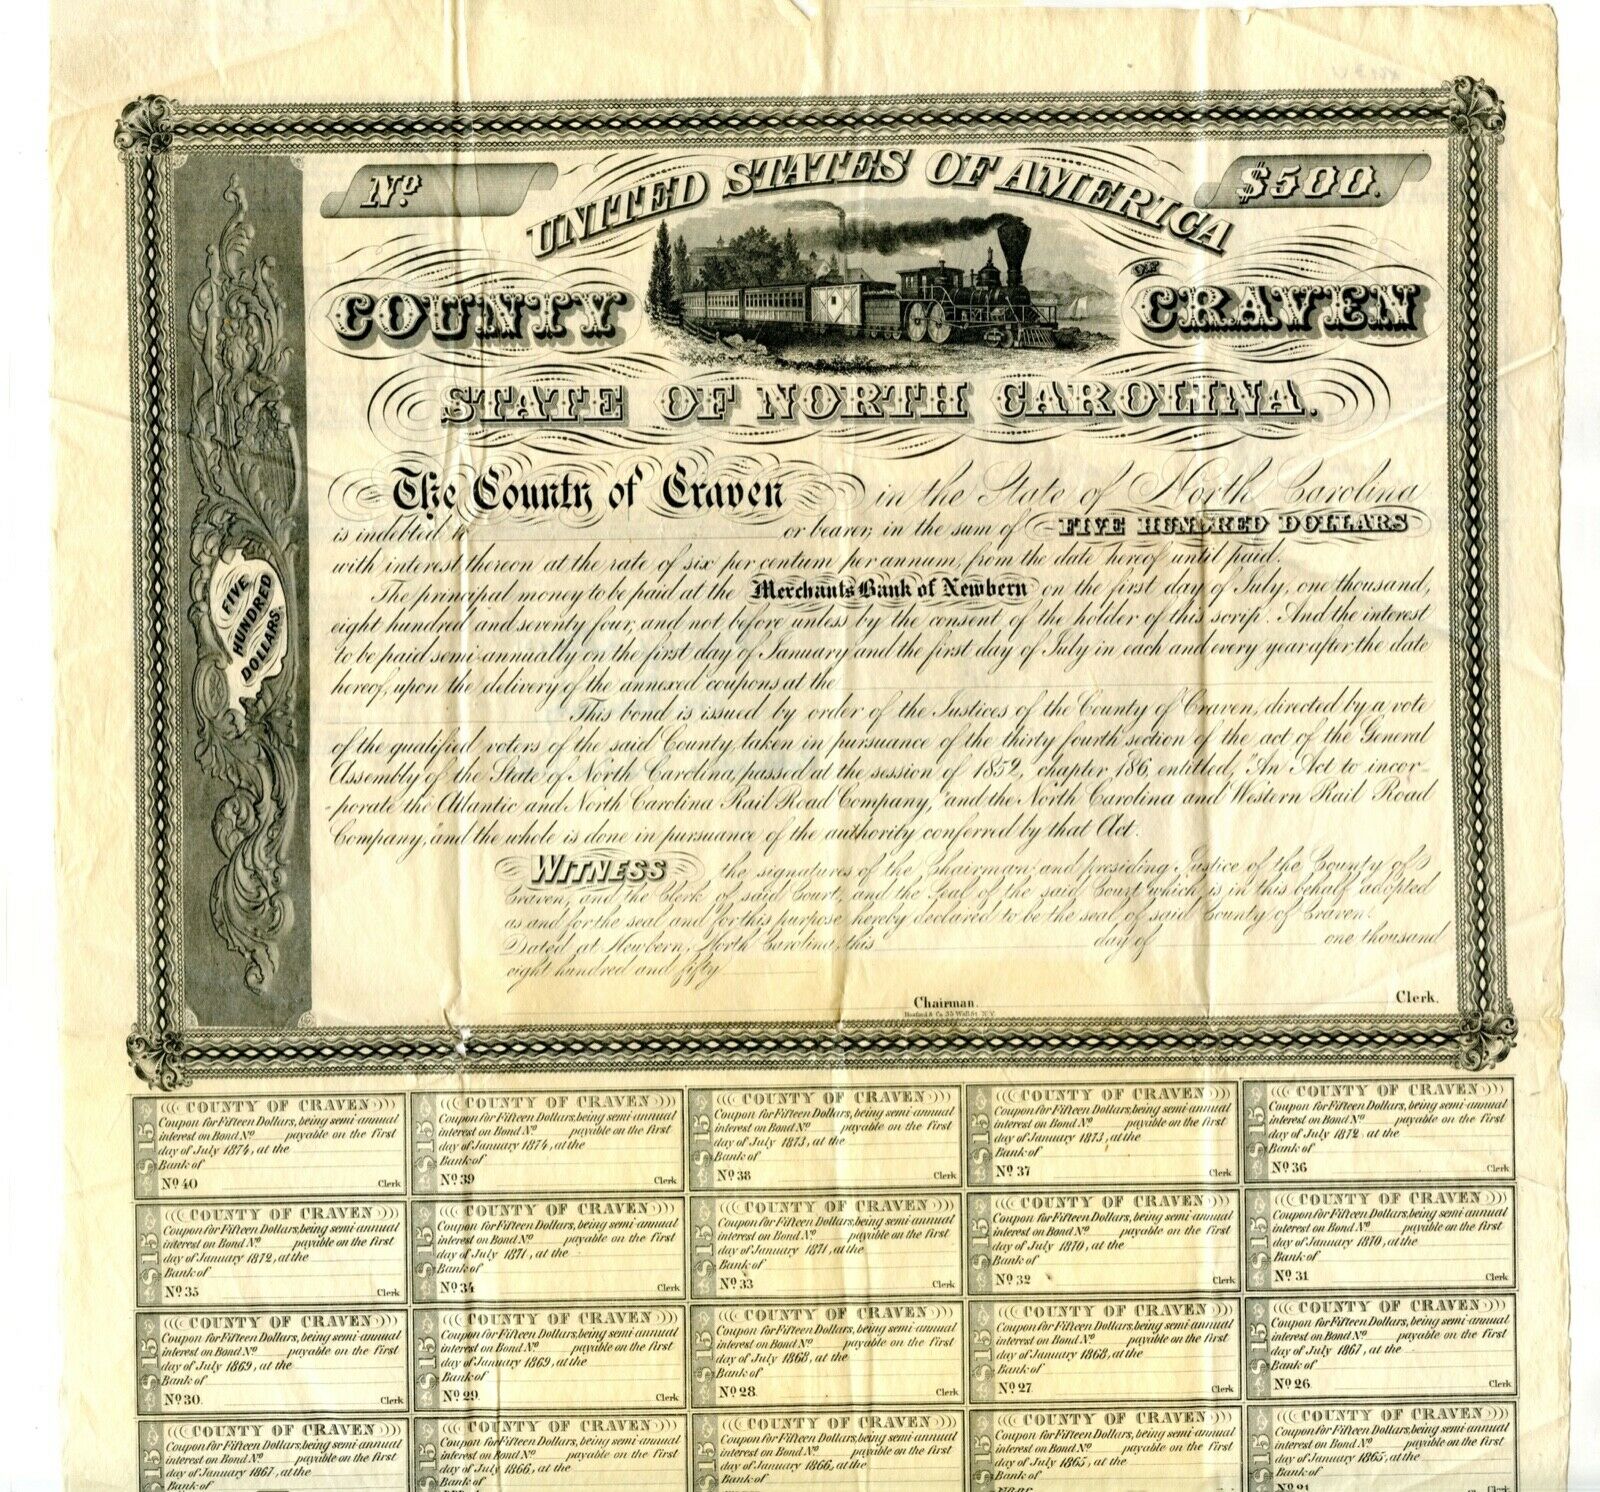 No.
$500.
UNITED STATES OF AMERICA
COUNTY OF CRAVEN
STATE OF NORTH CAROLINA.
FIVE HUNDRED DOLLARS.
The County of Craven in the State of North Carolina
is indebted to or bearer, in the sum of FIVE HUNDRED DOLLARS
with interest thereon at the rate of six per centum per annum, from the date hereof until paid.
The principal money to be paid at the Merchants Bank of Newbern on the first day of July, one thousand,
eight hundred and seventy four, and not before unless by the consent of the holder of this scrip. And the interest
to be paid semi-annually on the first day of January and the first day of July in each and every year after the date
hereof, upon the delivery of the annexed coupons at the
This bond is issued by order of the Justices of the County of Craven, directed by a vote
of the qualified voters of the said County, taken in pursuance of the thirty fourth section of the act of the General
Assembly of the State of North Carolina, passed at the session of 1852, chapter 186, entitled, "An Act to incor-
-porate the Atlantic and North Carolina Rail Road Company," and the North Carolina and Western Rail Road
Company," and the whole is done in pursuance of the authority conferred by that Act.
WITNESS the signatures of the Chairman, and presiding Justice of the County of
Craven, and the Clerk of said Court, and the Seal of the said Court which is in this behalf adopted
as and for the seal and for this purpose hereby declared to be the seal of said County of Craven.
Dated at Newbern, North Carolina, this day of one thousand
eight hundred and fifty
Chairman. Clerk.
Hosford & Co. 35 Wall St. N.Y.
$15 COUNTY OF CRAVEN
Coupon for Fifteen Dollars, being semi-annual
interest on Bond No. payable on the first
day of July 1874, at the
Bank of
No. 40 Clerk
$15 COUNTY OF CRAVEN
Coupon for Fifteen Dollars, being semi-annual
interest on Bond No. payable on the first
day of January 1874, at the
Bank of
No. 39 Clerk
$15 COUNTY OF CRAVEN
Coupon for Fifteen Dollars, being semi-annual
interest on Bond No. payable on the first
day of July 1873, at the
Bank of
No. 38 Clerk
$15 COUNTY OF CRAVEN
Coupon for Fifteen Dollars, being semi-annual
interest on Bond No. payable on the first
day of January 1873, at the
Bank of
No. 37 Clerk
$15 COUNTY OF CRAVEN
Coupon for Fifteen Dollars, being semi-annual
interest on Bond No. payable on the first
day of July 1872, at the
Bank of
No. 36 Clerk
$15 COUNTY OF CRAVEN
Coupon for Fifteen Dollars, being semi-annual
interest on Bond No. payable on the first
day of January 1872, at the
Bank of
No. 35 Clerk
$15 COUNTY OF CRAVEN
Coupon for Fifteen Dollars, being semi-annual
interest on Bond No. payable on the first
day of July 1871, at the
Bank of
No. 34 Clerk
$15 COUNTY OF CRAVEN
Coupon for Fifteen Dollars, being semi-annual
interest on Bond No. payable on the first
day of January 1871, at the
Bank of
No. 33 Clerk
$15 COUNTY OF CRAVEN
Coupon for Fifteen Dollars, being semi-annual
interest on Bond No. payable on the first
day of July 1870, at the
Bank of
No. 32 Clerk
$15 COUNTY OF CRAVEN
Coupon for Fifteen Dollars, being semi-annual
interest on Bond No. payable on the first
day of January 1870, at the
Bank of
No. 31 Clerk
$15 COUNTY OF CRAVEN
Coupon for Fifteen Dollars, being semi-annual
interest on Bond No. payable on the first
day of July 1869, at the
Bank of
No. 30. Clerk
$15 COUNTY OF CRAVEN
Coupon for Fifteen Dollars, being semi-annual
interest on Bond No. payable on the first
day of January 1869, at the
Bank of
No. 29. Clerk
$15 COUNTY OF CRAVEN
Coupon for Fifteen Dollars, being semi-annual
interest on Bond No. payable on the first
day of July 1868, at the
Bank of
No. 28. Clerk
$15 COUNTY OF CRAVEN
Coupon for Fifteen Dollars, being semi-annual
interest on Bond No. payable on the first
day of January 1868, at the
Bank of
No. 27. Clerk
$15 COUNTY OF CRAVEN
Coupon for Fifteen Dollars, being semi-annual
interest on Bond No. payable on the first
day of July 1867, at the
Bank of
No. 26. Clerk
$15 COUNTY OF CRAVEN
Coupon for Fifteen Dollars, being semi-annual
interest on Bond No. payable on the first
day of January 1867, at the
Bank of
$15 COUNTY OF CRAVEN
Coupon for Fifteen Dollars, being semi-annual
interest on Bond No. payable on the first
day of July 1866, at the
Bank of
$15 COUNTY OF CRAVEN
Coupon for Fifteen Dollars, being semi-annual
interest on Bond No. payable on the first
day of January 1866, at the
Bank of
$15 COUNTY OF CRAVEN
Coupon for Fifteen Dollars, being semi-annual
interest on Bond No. payable on the first
day of July 1865, at the
Bank of
$15 COUNTY OF CRAVEN
Coupon for Fifteen Dollars, being semi-annual
interest on Bond No. payable on the first
day of January 1865, at the
Bank of
No. 21 Clerk